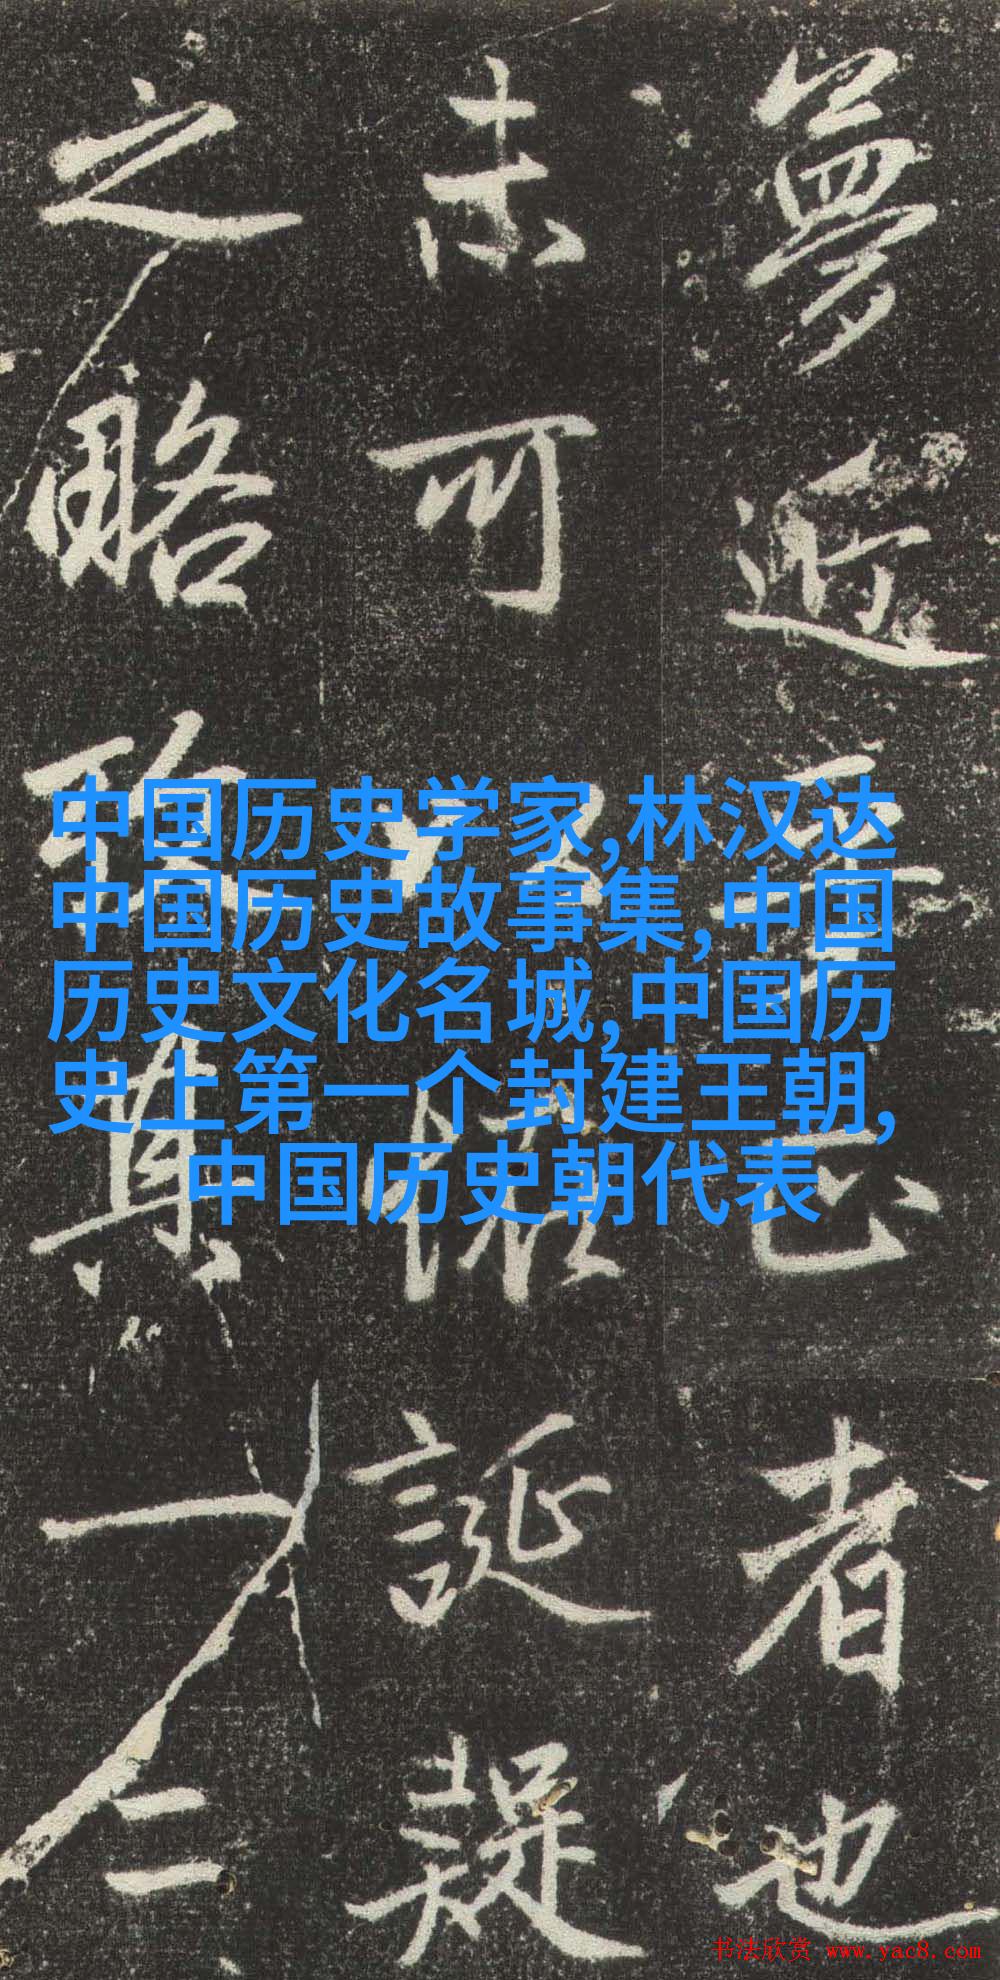 夢近正者也
未可誕疑
之略其一二
中国历史学家,林汉达
中国历史故事集,中国
历史文化名城,中国历
史上第一个封建王朝,
中国历史朝代表
书法欣赏 www.yac8.com